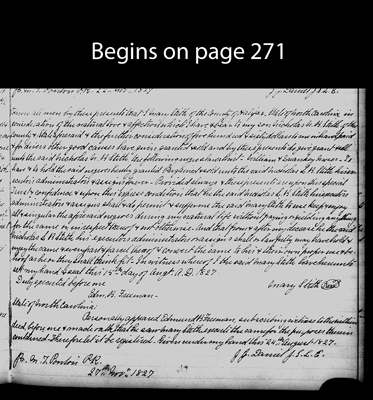 Begins on page 271
fr. M. T. Ponton P.R. 22 Nov. 1827 J. J. Daniel J.S.L.E.
Know all men by these presents that I Mary Lath of the County of Halifax State of North Carolina in
consideration of the natural love & affection which I have & bear to my son Nicholas L. H. Lath of the
County & State aforesaid & the further consideration of five hundred & sixty dollars to me in hand paid
& for divers other good causes have given granted & sold and by these presents do give grant & sell
unto the said Nicholas L. H. Lath the following negro slaves to wit. William & Beverly forever. To
have & to hold the said negroes hereby granted bargained & sold unto the said Nicholas L. H. Lath his ex-
ecutors administrators & assigns forever. Provided always & these presents are upon this special
trust & confidence & upon this express condition that he the said Nicholas L. H. Lath his executors
administrators & assigns shall & do permit & suffer me the said Mary Lath to use keep & enjoy
all & singular the aforesaid negroes during my natural life without paying or yielding anything
for the same in respect thereof & not otherwise. And that from & after my decease he the said
Nicholas L. H. Lath his executors administrators & assigns shall & lawfully may have hold &
enjoy the same & every part & parcel thereof & convert the same to his & their own proper use & be-
hoof as he or they shall think fit. In witness whereof I the said Mary Lath have hereunto
set my hand & seal this 14th day of Augt. A.D. 1827
Duly executed before me Mary Lath Seal
Edm. H. Freeman
State of North Carolina
Personally appeared Edmund H. Freeman, subscribing witness to the within
deed before me & made oath that he saw Mary Lath execute the same for the purposes therein
contained. Therefore let it be registered. Given under my hand this 24th August 1827.
fr. M. T. Ponton P.R. J. J. Daniel J.S.L.E.
28th Nov. 1827